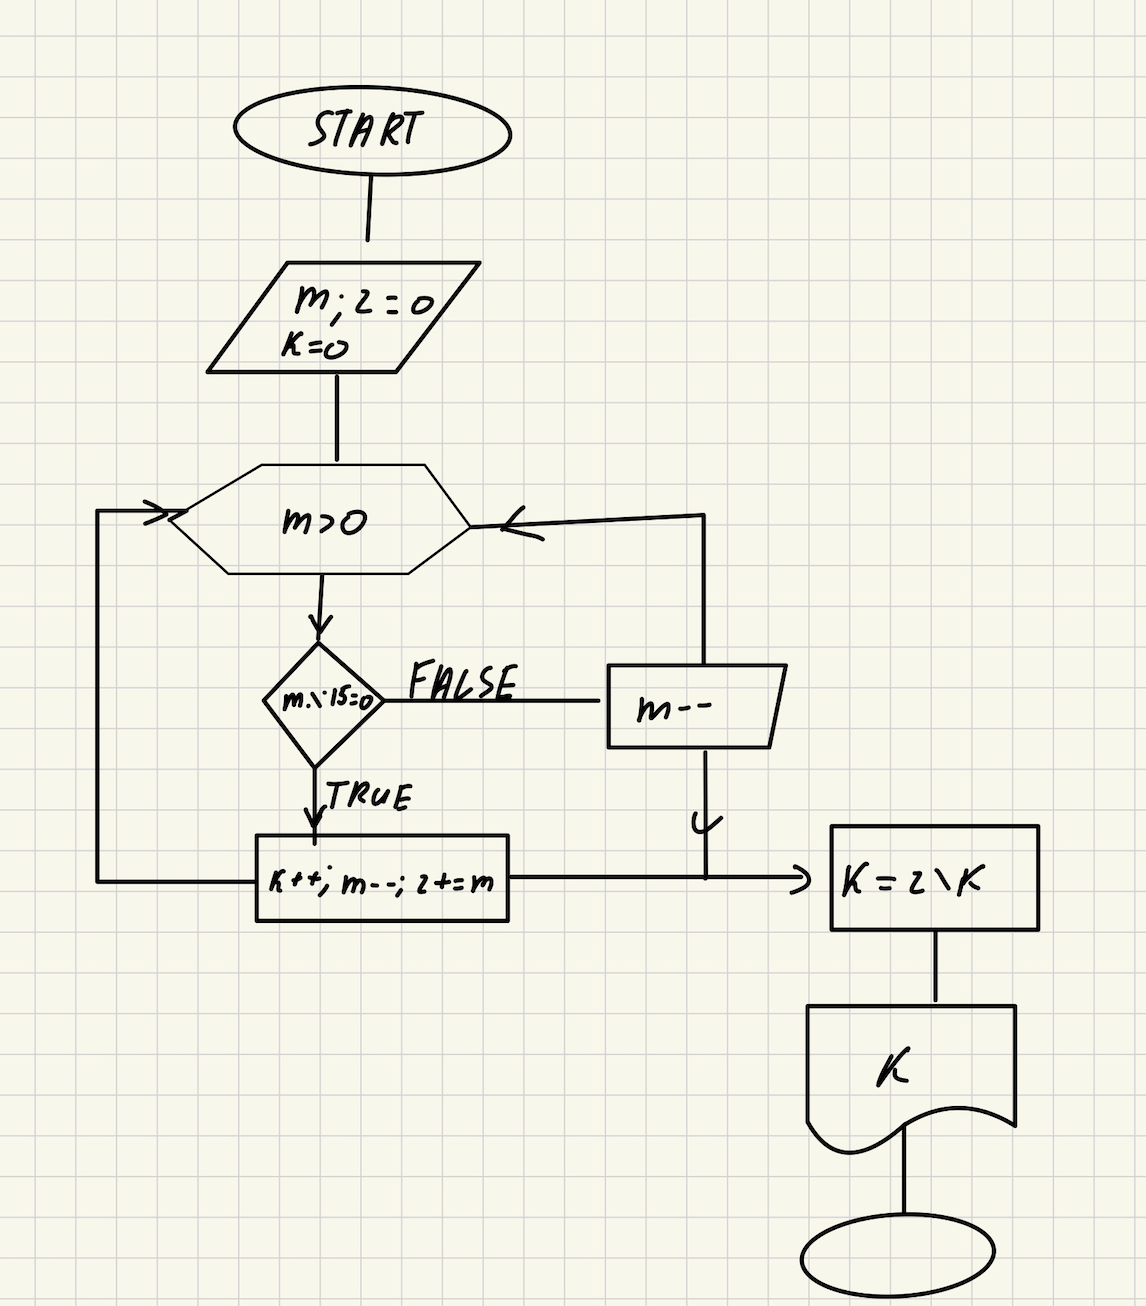 START
m; z = 0
K=0
m>0
m.\·15=0
FALSE
m--
TRUE
K++; m--; z+=m
K = z \ K
K